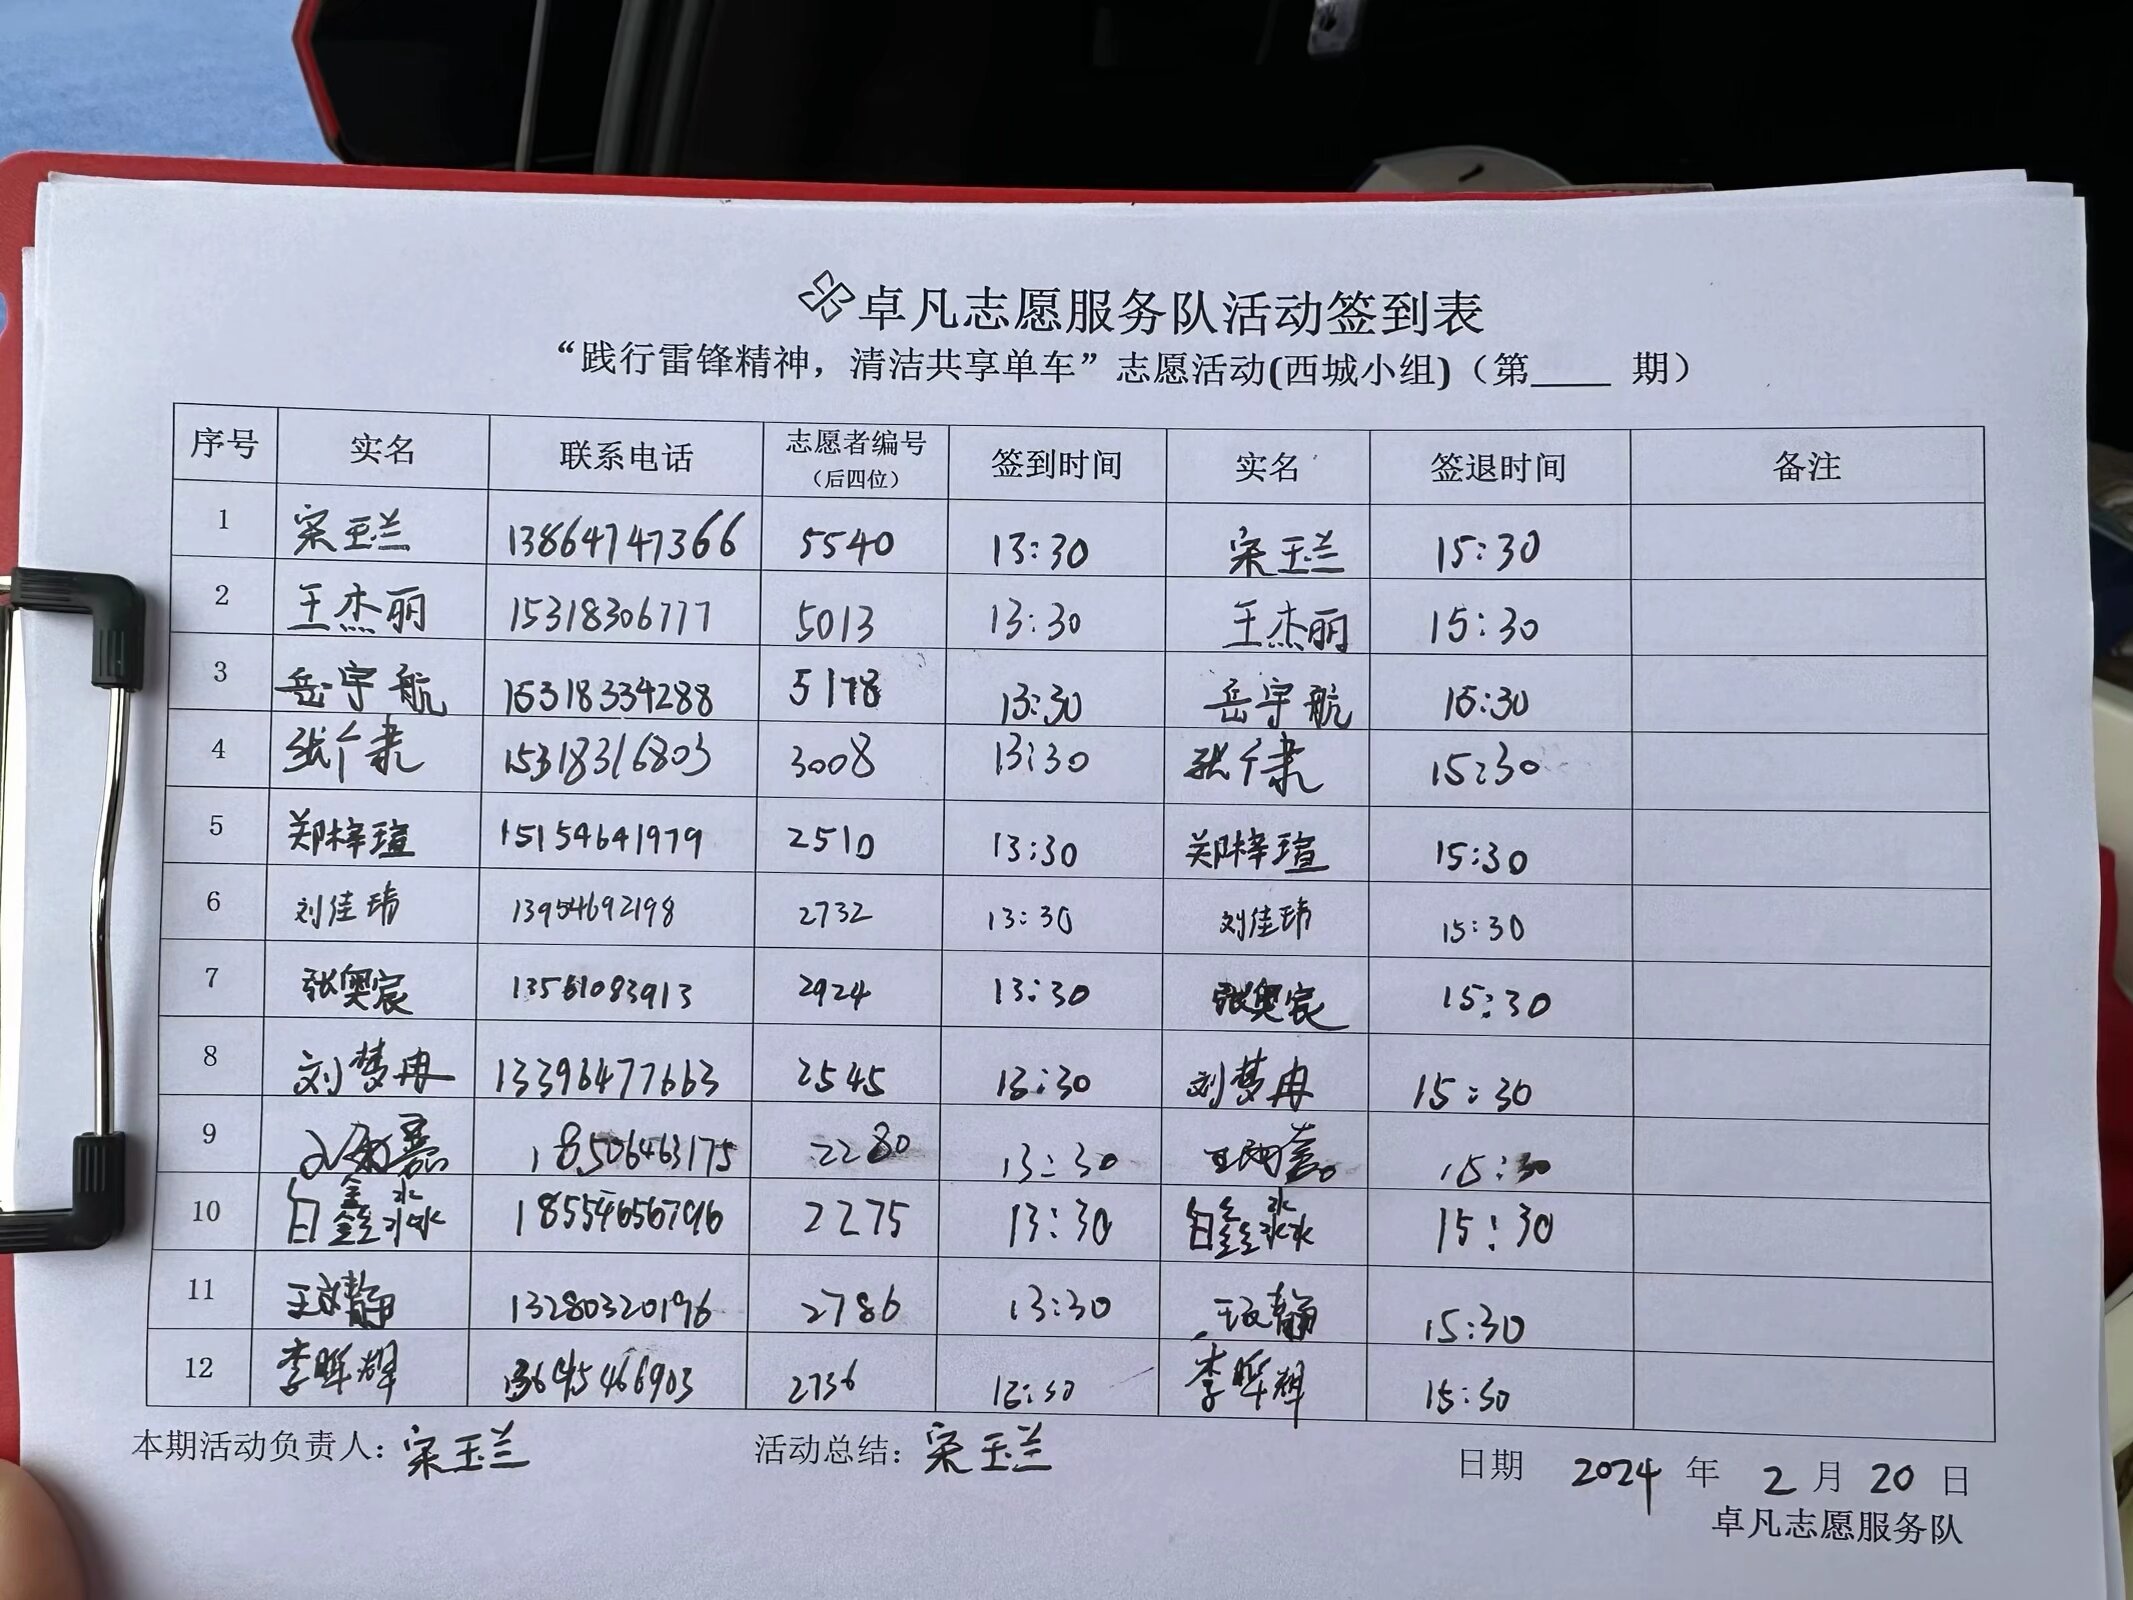 卓凡志愿服务队活动签到表
“践行雷锋精神，清洁共享单车”志愿活动(西城小组)（第____ 期）
序号 实名 联系电话 志愿者编号（后四位） 签到时间 实名 签退时间 备注
1 宋玉兰 13864747366 5540 13:30 宋玉兰 15:30
2 王杰丽 15318306777 5013 13:30 王杰丽 15:30
3 岳宇航 15318334288 5178 13:30 岳宇航 15:30
4 15318316803 3008 13:30 15:30
5 郑梓瑄 15154641979 2510 13:30 郑梓瑄 15:30
6 刘佳玮 13954692198 2732 13:30 刘佳玮 15:30
7 张奥宸 13561083913 2924 13:30 张奥宸 15:30
8 刘梦冉 13396477663 2545 13:30 刘梦冉 15:30
9 18506463175 2280 13:30 15:30
10 白鑫淼 18554656796 2275 13:30 白鑫淼 15:30
11 13280320196 2786 13:30 15:30
12 李晖辉 13645466903 2736 13:30 李晖辉 15:30
本期活动负责人：宋玉兰 活动总结：宋玉兰 日期 2024 年 2 月 20 日
卓凡志愿服务队